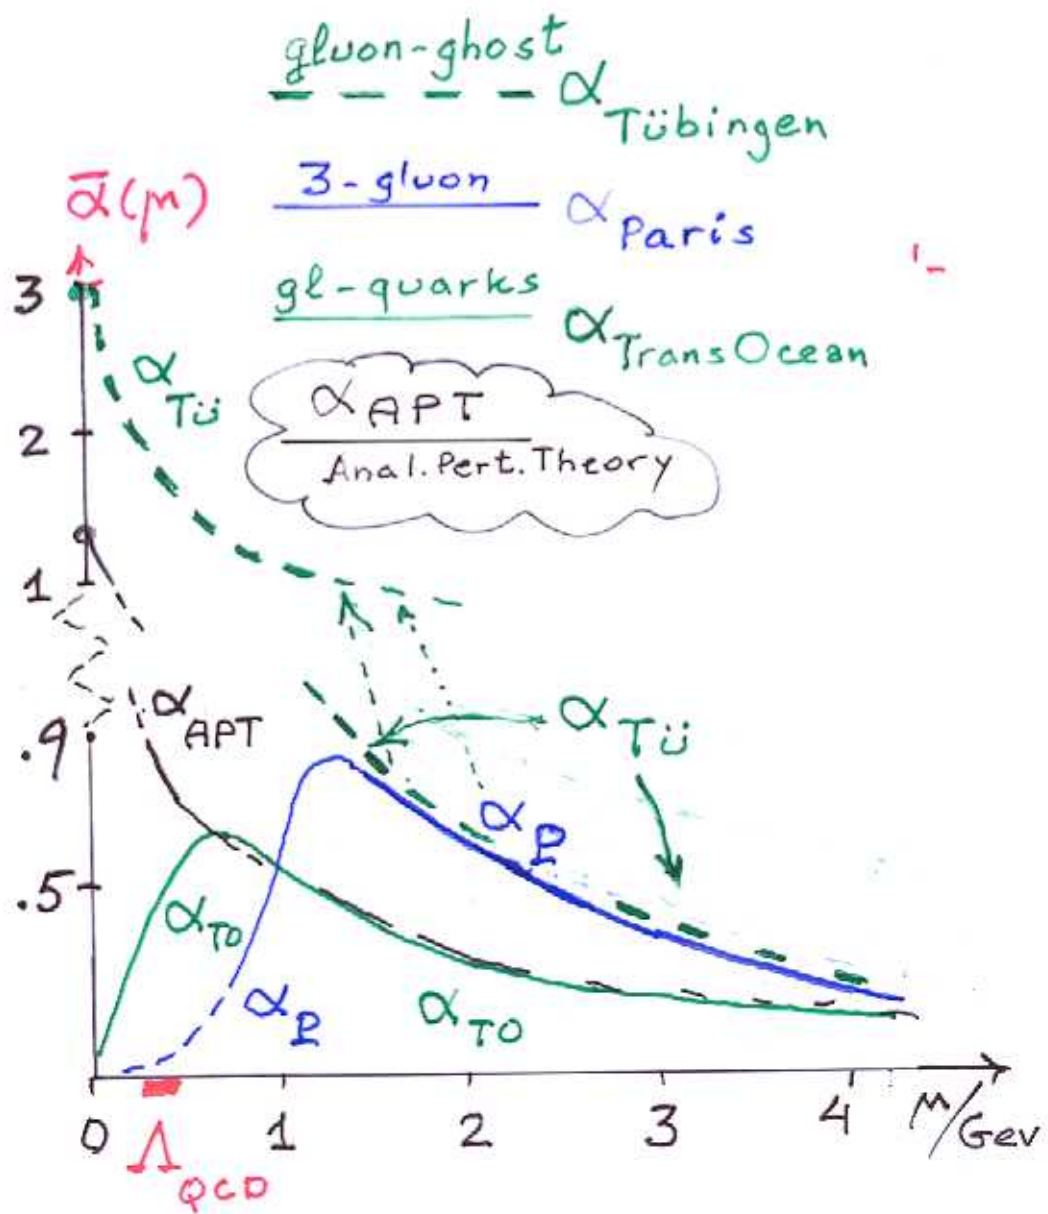 gluon-ghost
α Tübingen
3-gluon
α Paris
ᾱ(μ)
gl-quarks
α TransOcean
3
α Tü
α APT
Anal. Pert. Theory
2
1
α APT
.9
α Tü
α P
.5
α TO
α P
α TO
0
1
2
3
4
μ/Gev
Λ QCD